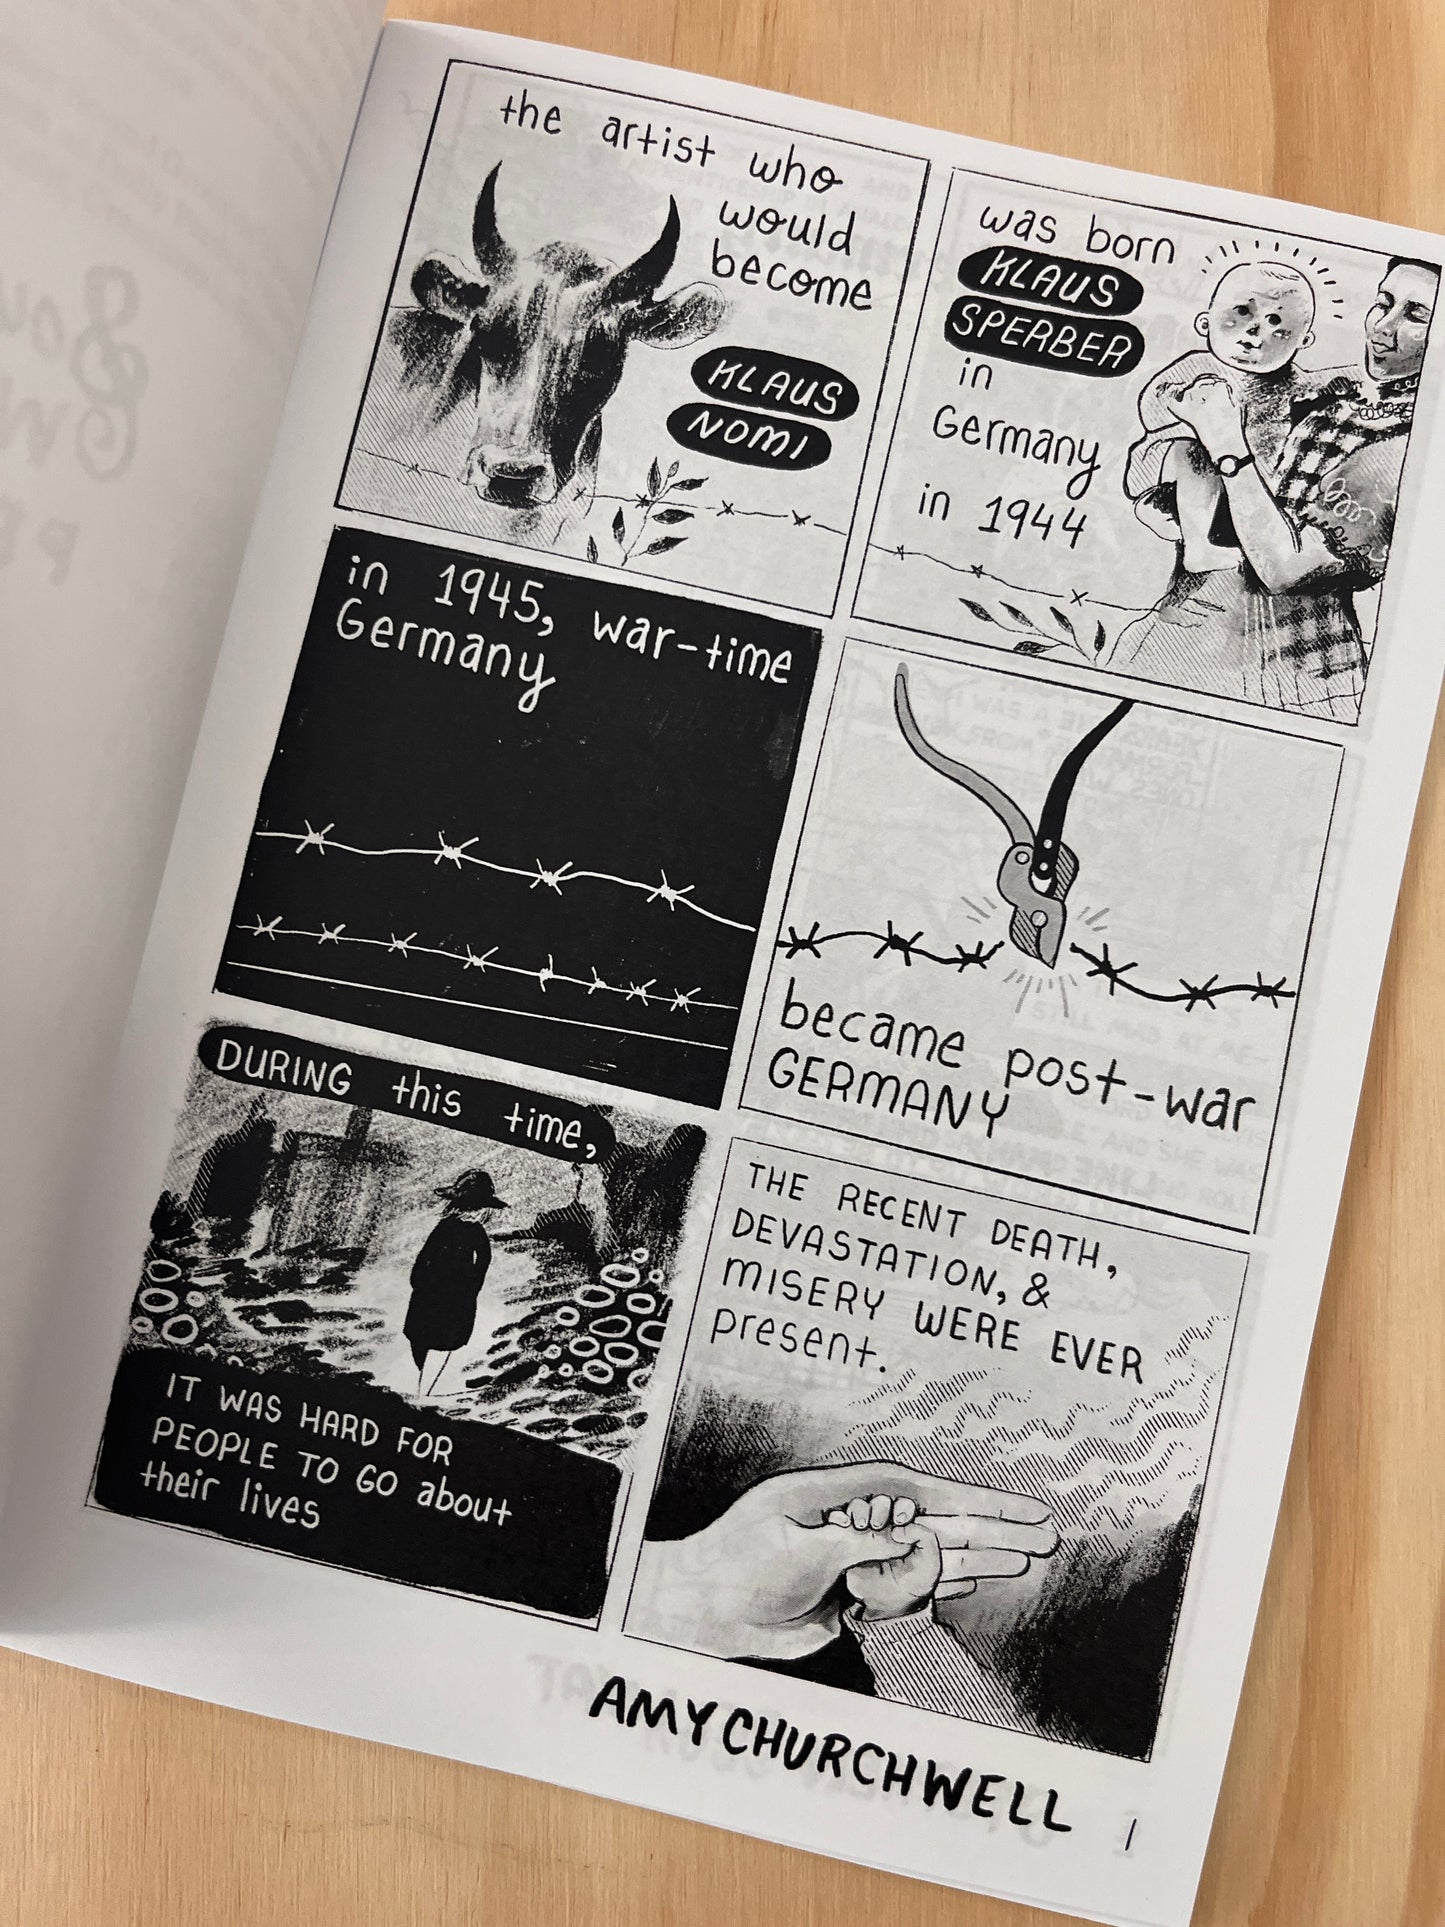 the artist who
would
become
KLAUS
NOMI
was born
KLAUS
SPERBER
in
Germany
in 1944
in 1945, war-time
Germany
became post-war
GERMANY
DURING this time,
IT WAS HARD FOR
PEOPLE TO GO about
their lives
THE RECENT DEATH,
DEVASTATION, &
MISERY WERE EVER
present.
AMY CHURCHWELL
1